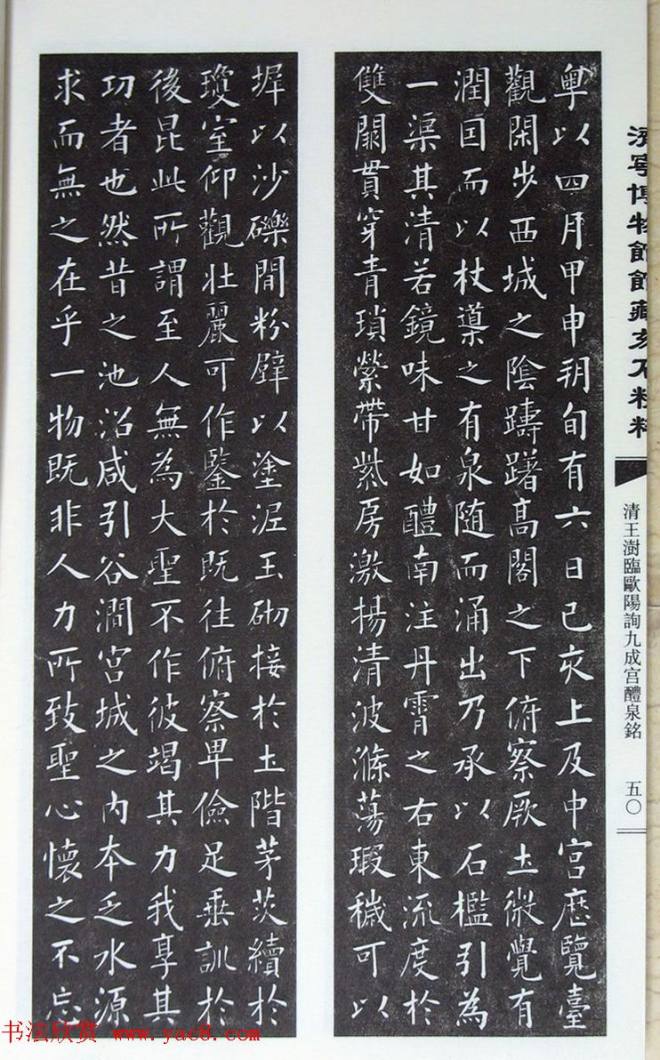 濟寧博物館館藏刻石
清王澍臨歐陽詢九成宮醴泉銘
五〇
粵以四月甲申朔旬有六日己亥上及中宮歷覽臺
觀閑步西城之陰躊躇高閣之下俯察厥土微覺有
潤因而以杖導之有泉隨而涌出乃承以石檻引為
一渠其清若鏡味甘如醴南注丹霄之右東流度於
雙闕貫穿青瑣縈帶紫房激揚清波滌蕩瑕穢可以
墀以沙礫間粉壁以塗泥玉砌接於土階茅茨續於
瓊室仰觀壯麗可作鑒於既往俯察卑儉足垂訓於
後昆此所謂至人無為大聖不作彼竭其力我享其
功者也然昔之池沼咸引谷澗宮城之內本乏水源
求而無之在乎一物既非人力所致聖心懷之不忘
书法欣赏 www.yac8.com